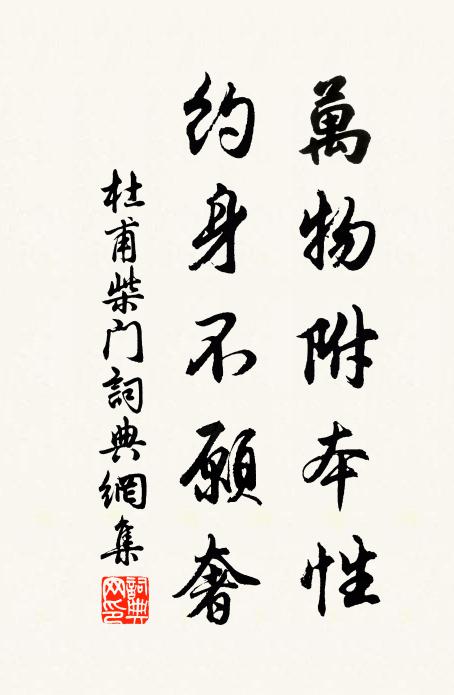 萬物附本性
約身不願奢
杜甫柴门詞典網集
詞典网印